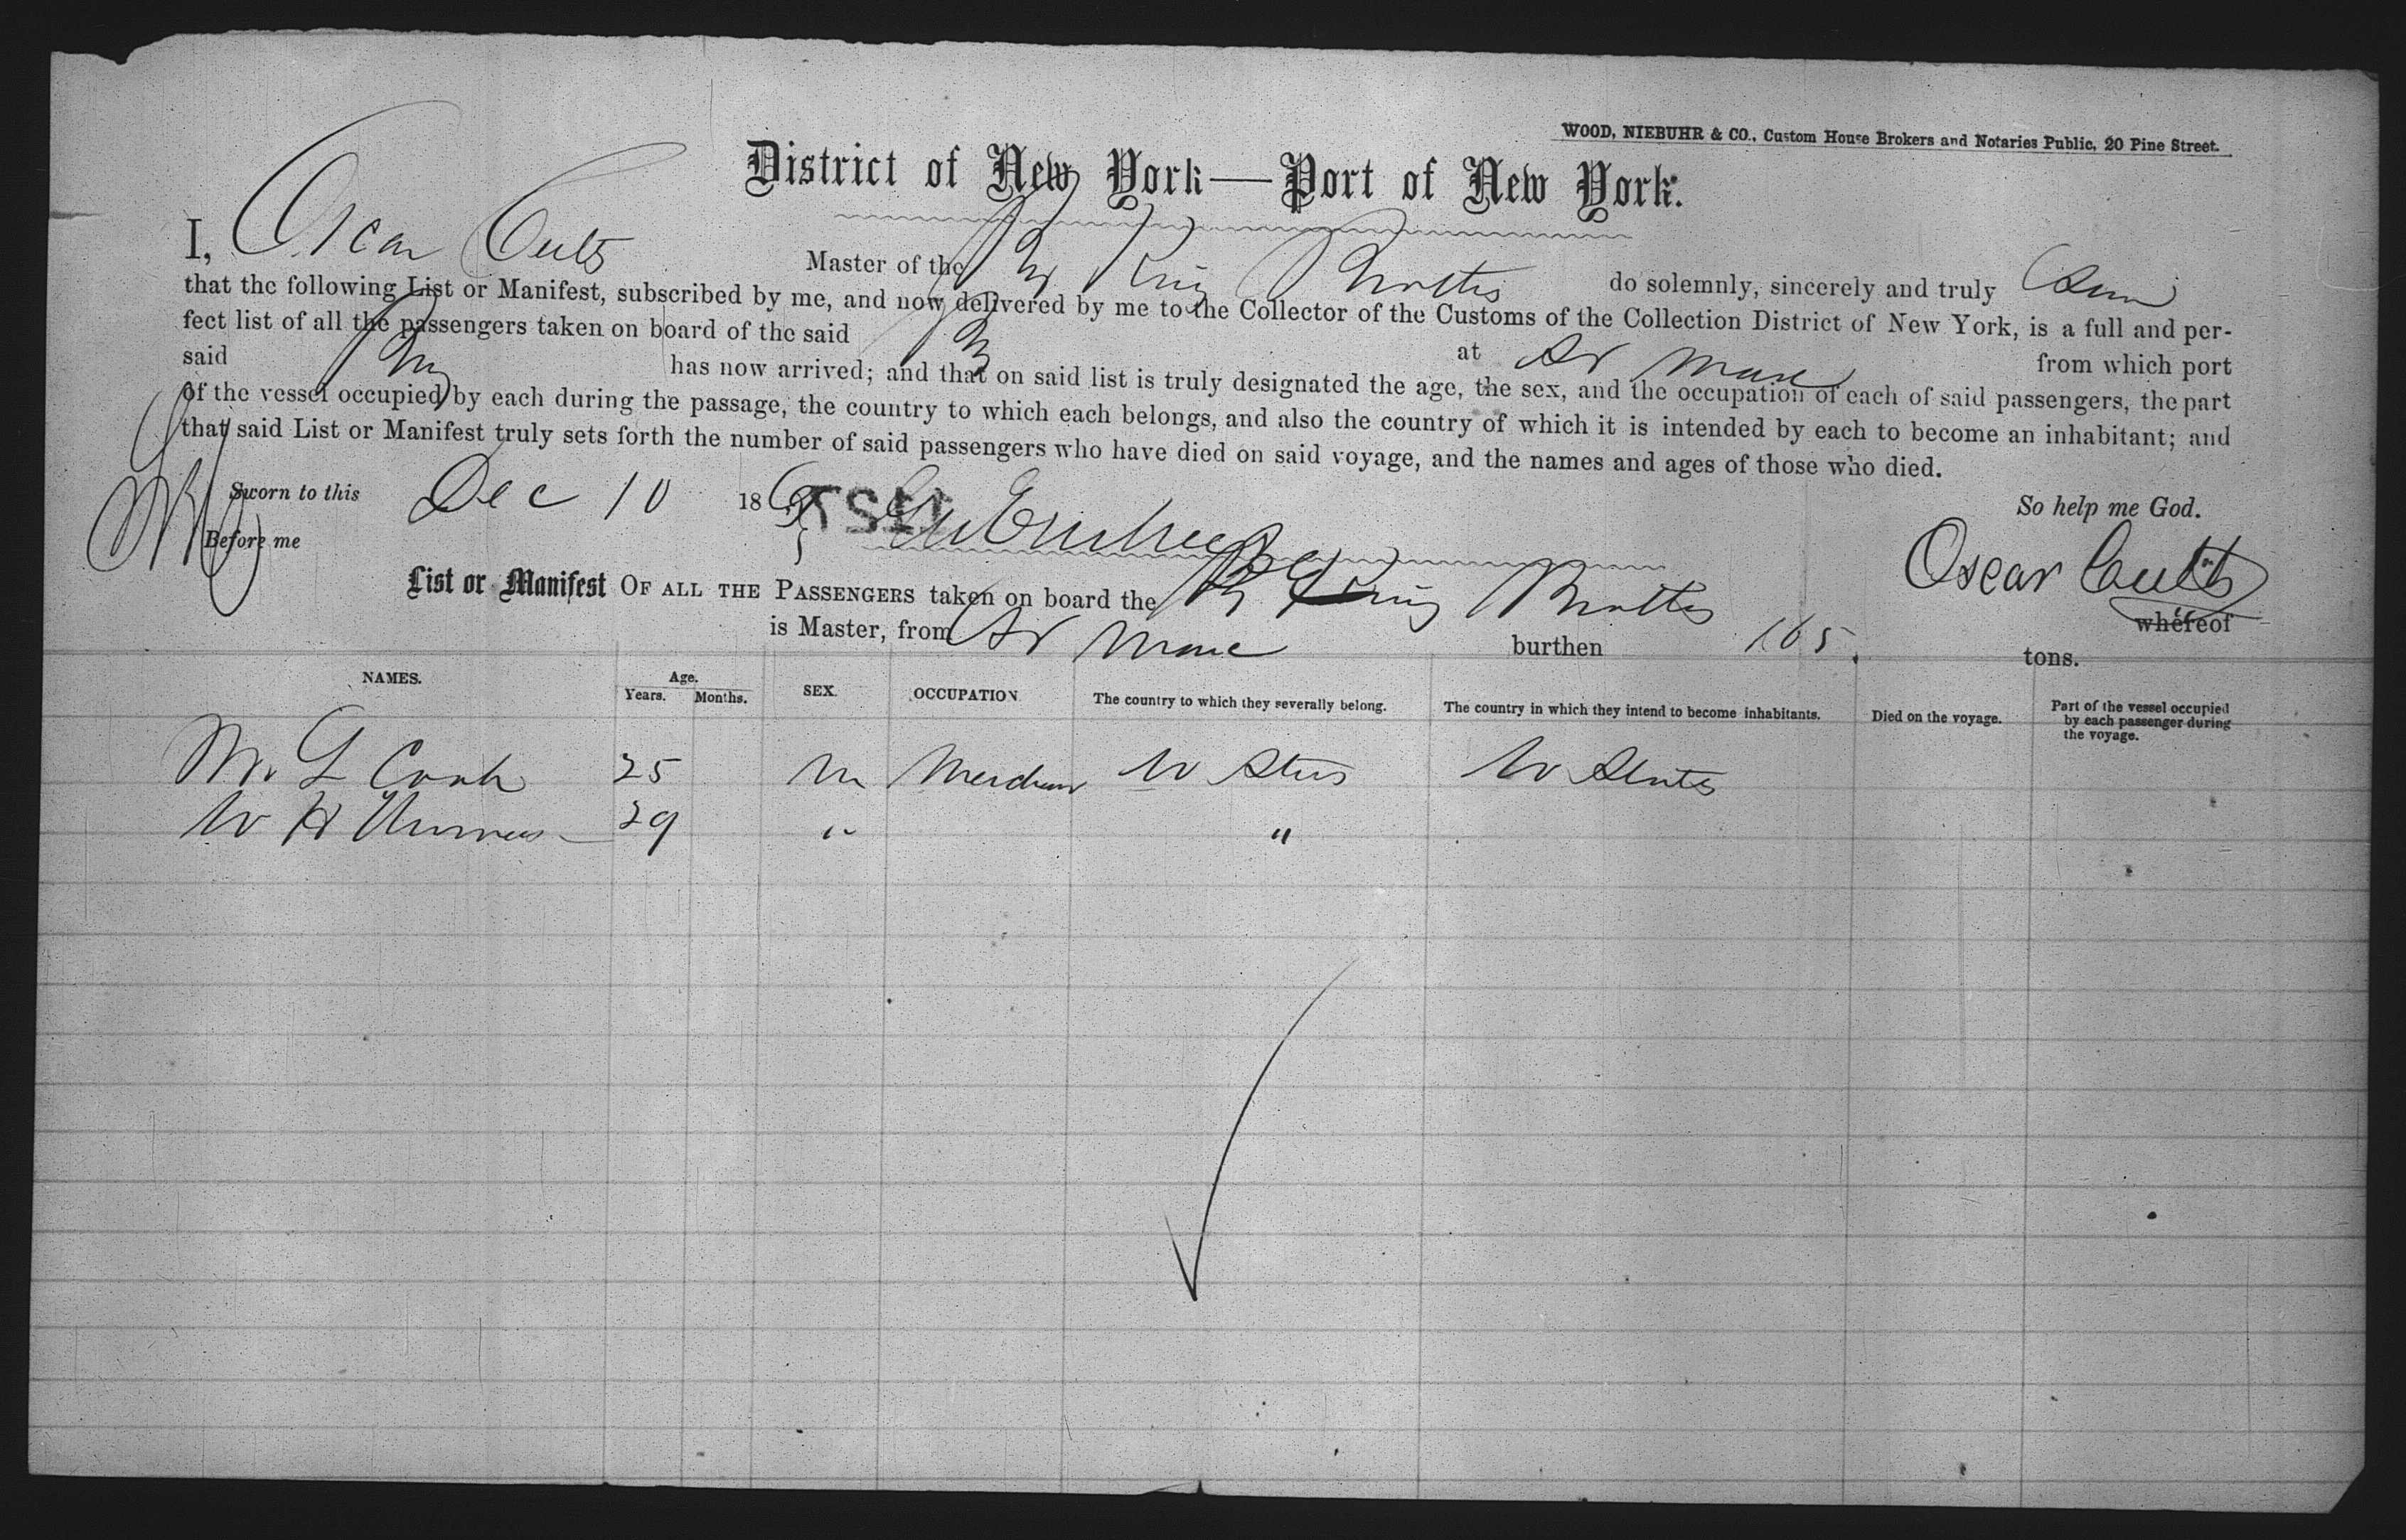 WOOD, NIEBUHR & CO., Custom House Brokers and Notaries Public, 20 Pine Street.
District of New York—Port of New York.
I, Oscar Cults Master of the Br Brig Brothers do solemnly, sincerely and truly
that the following List or Manifest, subscribed by me, and now delivered by me to the Collector of the Customs of the Collection District of New York, is a full and per-
fect list of all the passengers taken on board of the said at St Marc from which port
said Brig has now arrived; and that on said list is truly designated the age, the sex, and the occupation of each of said passengers, the part
of the vessel occupied by each during the passage, the country to which each belongs, and also the country of which it is intended by each to become an inhabitant; and
that said List or Manifest truly sets forth the number of said passengers who have died on said voyage, and the names and ages of those who died.
Sworn to this Dec 10 186 So help me God.
Before me Oscar Cults
List or Manifest OF ALL THE PASSENGERS taken on board the Br Brig Brothers whereof
is Master, from St Marc burthen 165 tons.
NAMES. Age. Years. Months. SEX. OCCUPATION The country to which they severally belong. The country in which they intend to become inhabitants. Died on the voyage. Part of the vessel occupied by each passenger during the voyage.
M. G Cook 25 m Merchant U States U States
W H 29 " "